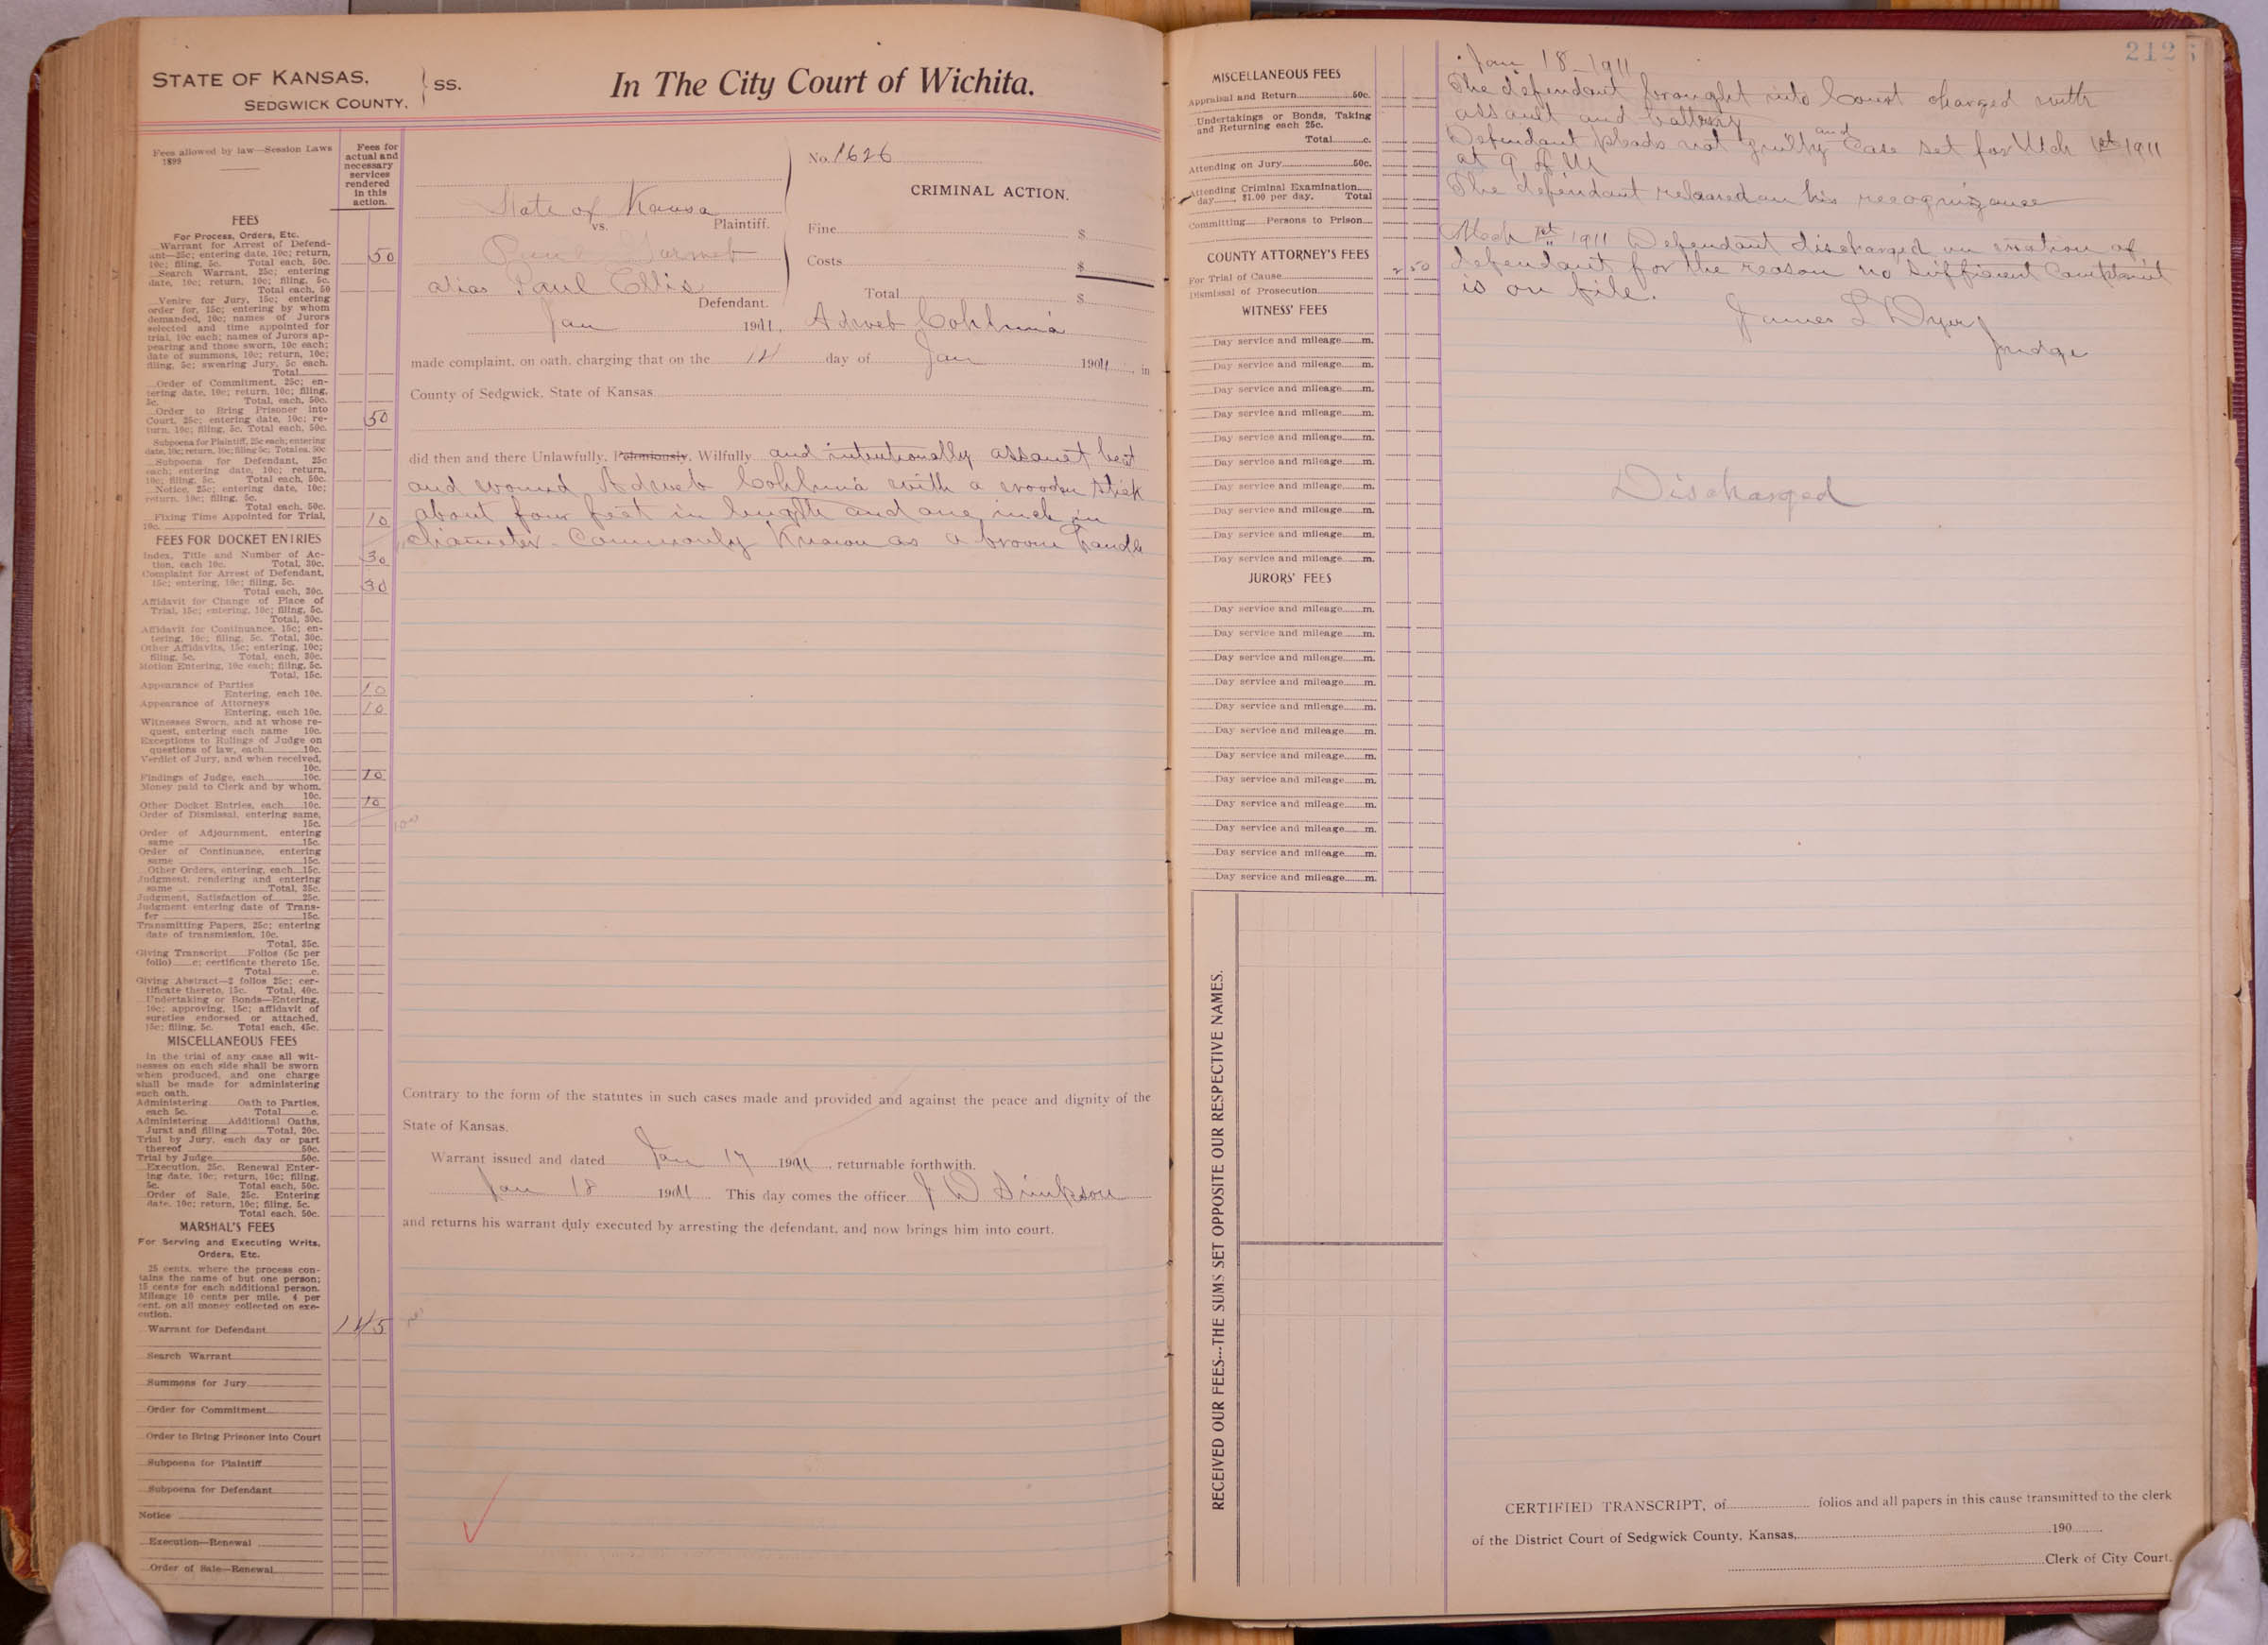 STATE OF KANSAS,
SEDGWICK COUNTY.
SS.
In The City Court of Wichita.
Fees allowed by law—Session Laws
1899
Fees for
actual and
necessary
services
rendered
in this
action.
FEES
For Process, Orders, Etc.
Warrant for Arrest of Defend-
ant—25c; entering date, 10c; return,
10c; filing, 5c. Total each, 50c. 50
Search Warrant, 25c; entering
date, 10c; return, 10c; filing, 5c.
Total each, 50
Venire for Jury, 15c; entering
order for, 15c; entering by whom
demanded, 10c; names of Jurors
selected and time appointed for
trial, 10c each; names of Jurors ap-
pearing and those sworn, 10c each;
date of summons, 10c; return, 10c;
filing, 5c; swearing Jury, 5c each.
Total
Order of Commitment, 25c; en-
tering date, 10c; return, 10c; filing,
5c. Total, each, 50c.
Order to Bring Prisoner into
Court, 25c; entering date, 10c; re-
turn, 10c; filing, 5c. Total each, 50c. 50
Subpoena for Plaintiff, 25c each; entering
date, 10c; return, 10c; filing 5c; Total ea. 50c
Subpoena for Defendant, 25c
each; entering date, 10c; return,
10c; filing, 5c. Total each, 50c.
Notice, 25c; entering date, 10c;
return, 10c; filing, 5c.
Total each, 50c.
Fixing Time Appointed for Trial,
10c. 10
FEES FOR DOCKET ENTRIES
Index, Title and Number of Ac-
tion, each 10c. Total, 30c. 30
Complaint for Arrest of Defendant,
15c; entering, 10c; filing, 5c.
Total each, 30c. 30
Affidavit for Change of Place of
Trial, 15c; entering, 10c; filing, 5c.
Total, 30c.
Affidavit for Continuance, 15c; en-
tering, 10c; filing, 5c. Total, 30c.
Other Affidavits, 15c; entering, 10c;
filing, 5c. Total, each, 30c.
Motion Entering, 10c each; filing, 5c.
Total, 15c.
Appearance of Parties
Entering, each 10c. 10
Appearance of Attorneys
Entering, each 10c. 10
Witnesses Sworn, and at whose re-
quest, entering each name 10c.
Exceptions to Rulings of Judge on
questions of law, each 10c.
Verdict of Jury, and when received,
10c.
Findings of Judge, each 10c. 10
Money paid to Clerk and by whom,
10c.
Other Docket Entries, each 10c. 10
Order of Dismissal, entering same,
15c.
Order of Adjournment, entering
same 15c.
Order of Continuance, entering
same 15c.
Other Orders, entering, each 15c.
Judgment, rendering and entering
same Total, 35c.
Judgment, Satisfaction of 25c.
Judgment entering date of Trans-
fer 15c.
Transmitting Papers, 25c; entering
date of transmission, 10c.
Total, 35c.
Giving Transcript Folios (5c per
folio) c; certificate thereto 15c.
Total c.
Giving Abstract—2 folios 25c; cer-
tificate thereto, 15c. Total, 40c.
Undertaking or Bonds—Entering,
10c; approving, 15c; affidavit of
sureties endorsed or attached,
15c; filing, 5c. Total each, 45c.
MISCELLANEOUS FEES
In the trial of any case all wit-
nesses on each side shall be sworn
when produced, and one charge
shall be made for administering
each oath.
Administering Oath to Parties,
each 5c. Total c.
Administering Additional Oaths,
Jurat and filing Total, 20c.
Trial by Jury, each day or part
thereof 50c.
Trial by Judge 50c.
Execution, 25c. Renewal Enter-
ing date, 10c; return, 10c; filing,
5c. Total each, 50c.
Order of Sale, 25c. Entering
date, 10c; return, 10c; filing, 5c.
Total each, 50c.
MARSHAL'S FEES
For Serving and Executing Writs,
Orders, Etc.
25 cents, where the process con-
tains the name of but one person;
15 cents for each additional person.
Mileage 10 cents per mile. 4 per
cent. on all money collected on exe-
cution.
Warrant for Defendant 1 45
Search Warrant
Summons for Jury
Order for Commitment
Order to Bring Prisoner into Court
Subpoena for Plaintiff
Subpoena for Defendant
Notice
Execution—Renewal
Order of Sale—Renewal
No. 1626
CRIMINAL ACTION.
State of Kansas
vs. Plaintiff.
Paul
alias Paul Ellis
Defendant.
Fine $
Costs $
Total $
Jan 1911, Adweb Cohlmia
made complaint, on oath, charging that on the 14 day of Jan 1911, in
County of Sedgwick, State of Kansas
did then and there Unlawfully, Feloniously, Wilfully and intentionally assault beat
and wound Adweb Cohlmia with a wooden stick
about four feet in length and one inch in
diameter - Commonly Known as a broom handle
Contrary to the form of the statutes in such cases made and provided and against the peace and dignity of the
State of Kansas.
Warrant issued and dated Jan 17 1911, returnable forthwith.
Jan 18 1911 This day comes the officer J W Simpson
and returns his warrant duly executed by arresting the defendant, and now brings him into court.
MISCELLANEOUS FEES
Appraisal and Return 50c.
Undertakings or Bonds, Taking
and Returning each 25c.
Total c.
Attending on Jury 50c.
Attending Criminal Examination
day, $1.00 per day. Total
Committing Persons to Prison
COUNTY ATTORNEY'S FEES
For Trial of Cause 2 50
Dismissal of Prosecution
WITNESS' FEES
Day service and mileage m.
Day service and mileage m.
Day service and mileage m.
Day service and mileage m.
Day service and mileage m.
Day service and mileage m.
Day service and mileage m.
Day service and mileage m.
Day service and mileage m.
Day service and mileage m.
JURORS' FEES
Day service and mileage m.
Day service and mileage m.
Day service and mileage m.
Day service and mileage m.
Day service and mileage m.
Day service and mileage m.
Day service and mileage m.
Day service and mileage m.
Day service and mileage m.
Day service and mileage m.
Day service and mileage m.
Day service and mileage m.
RECEIVED OUR FEES---THE SUMS SET OPPOSITE OUR RESPECTIVE NAMES.
212
Jan 18-1911
The defendant brought into Court charged with
assault and battery
Defendant pleads not guilty and Case set for Mch 1st 1911
at 9 A M
The defendant released on his recognizance
Mch 1st 1911 Defendant discharged on motion of
defendant, for the reason no sufficient complaint
is on file.
James L Dyer
Judge
Discharged
CERTIFIED TRANSCRIPT, of folios and all papers in this cause transmitted to the clerk
of the District Court of Sedgwick County, Kansas, 190
Clerk of City Court.